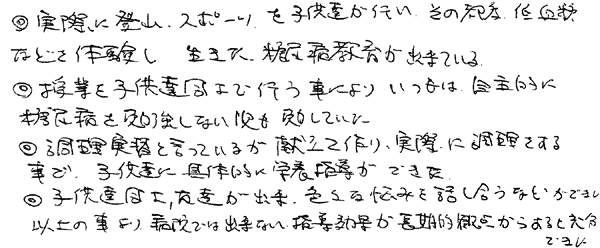 ◎実際に登山、スポーツを子供達が行い、その都度、低血糖
などを体験し 生きた、糖尿病教育が出来ている。
◎授業を子供達同士で行う事により いつもは、自主的に
糖尿病を勉強しない児も勉していた
◎調理実習と言っているが献立て作り、実際に調理をする
事で、子供達に具体的に栄養指導ができた
◎子供達同士、友達が出来、色々な悩みを話し合うなどができい
以上の事より、病院では出来ない指導効果が長期的観点からすると充分
でき